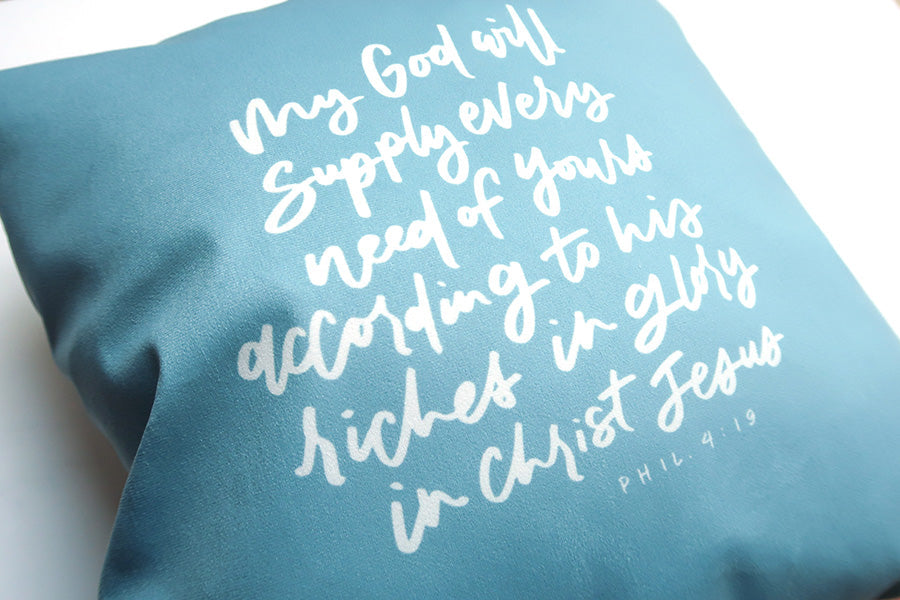 My God will
Supply every
need of yours
according to his
riches in glory
in Christ Jesus
PHIL. 4:19